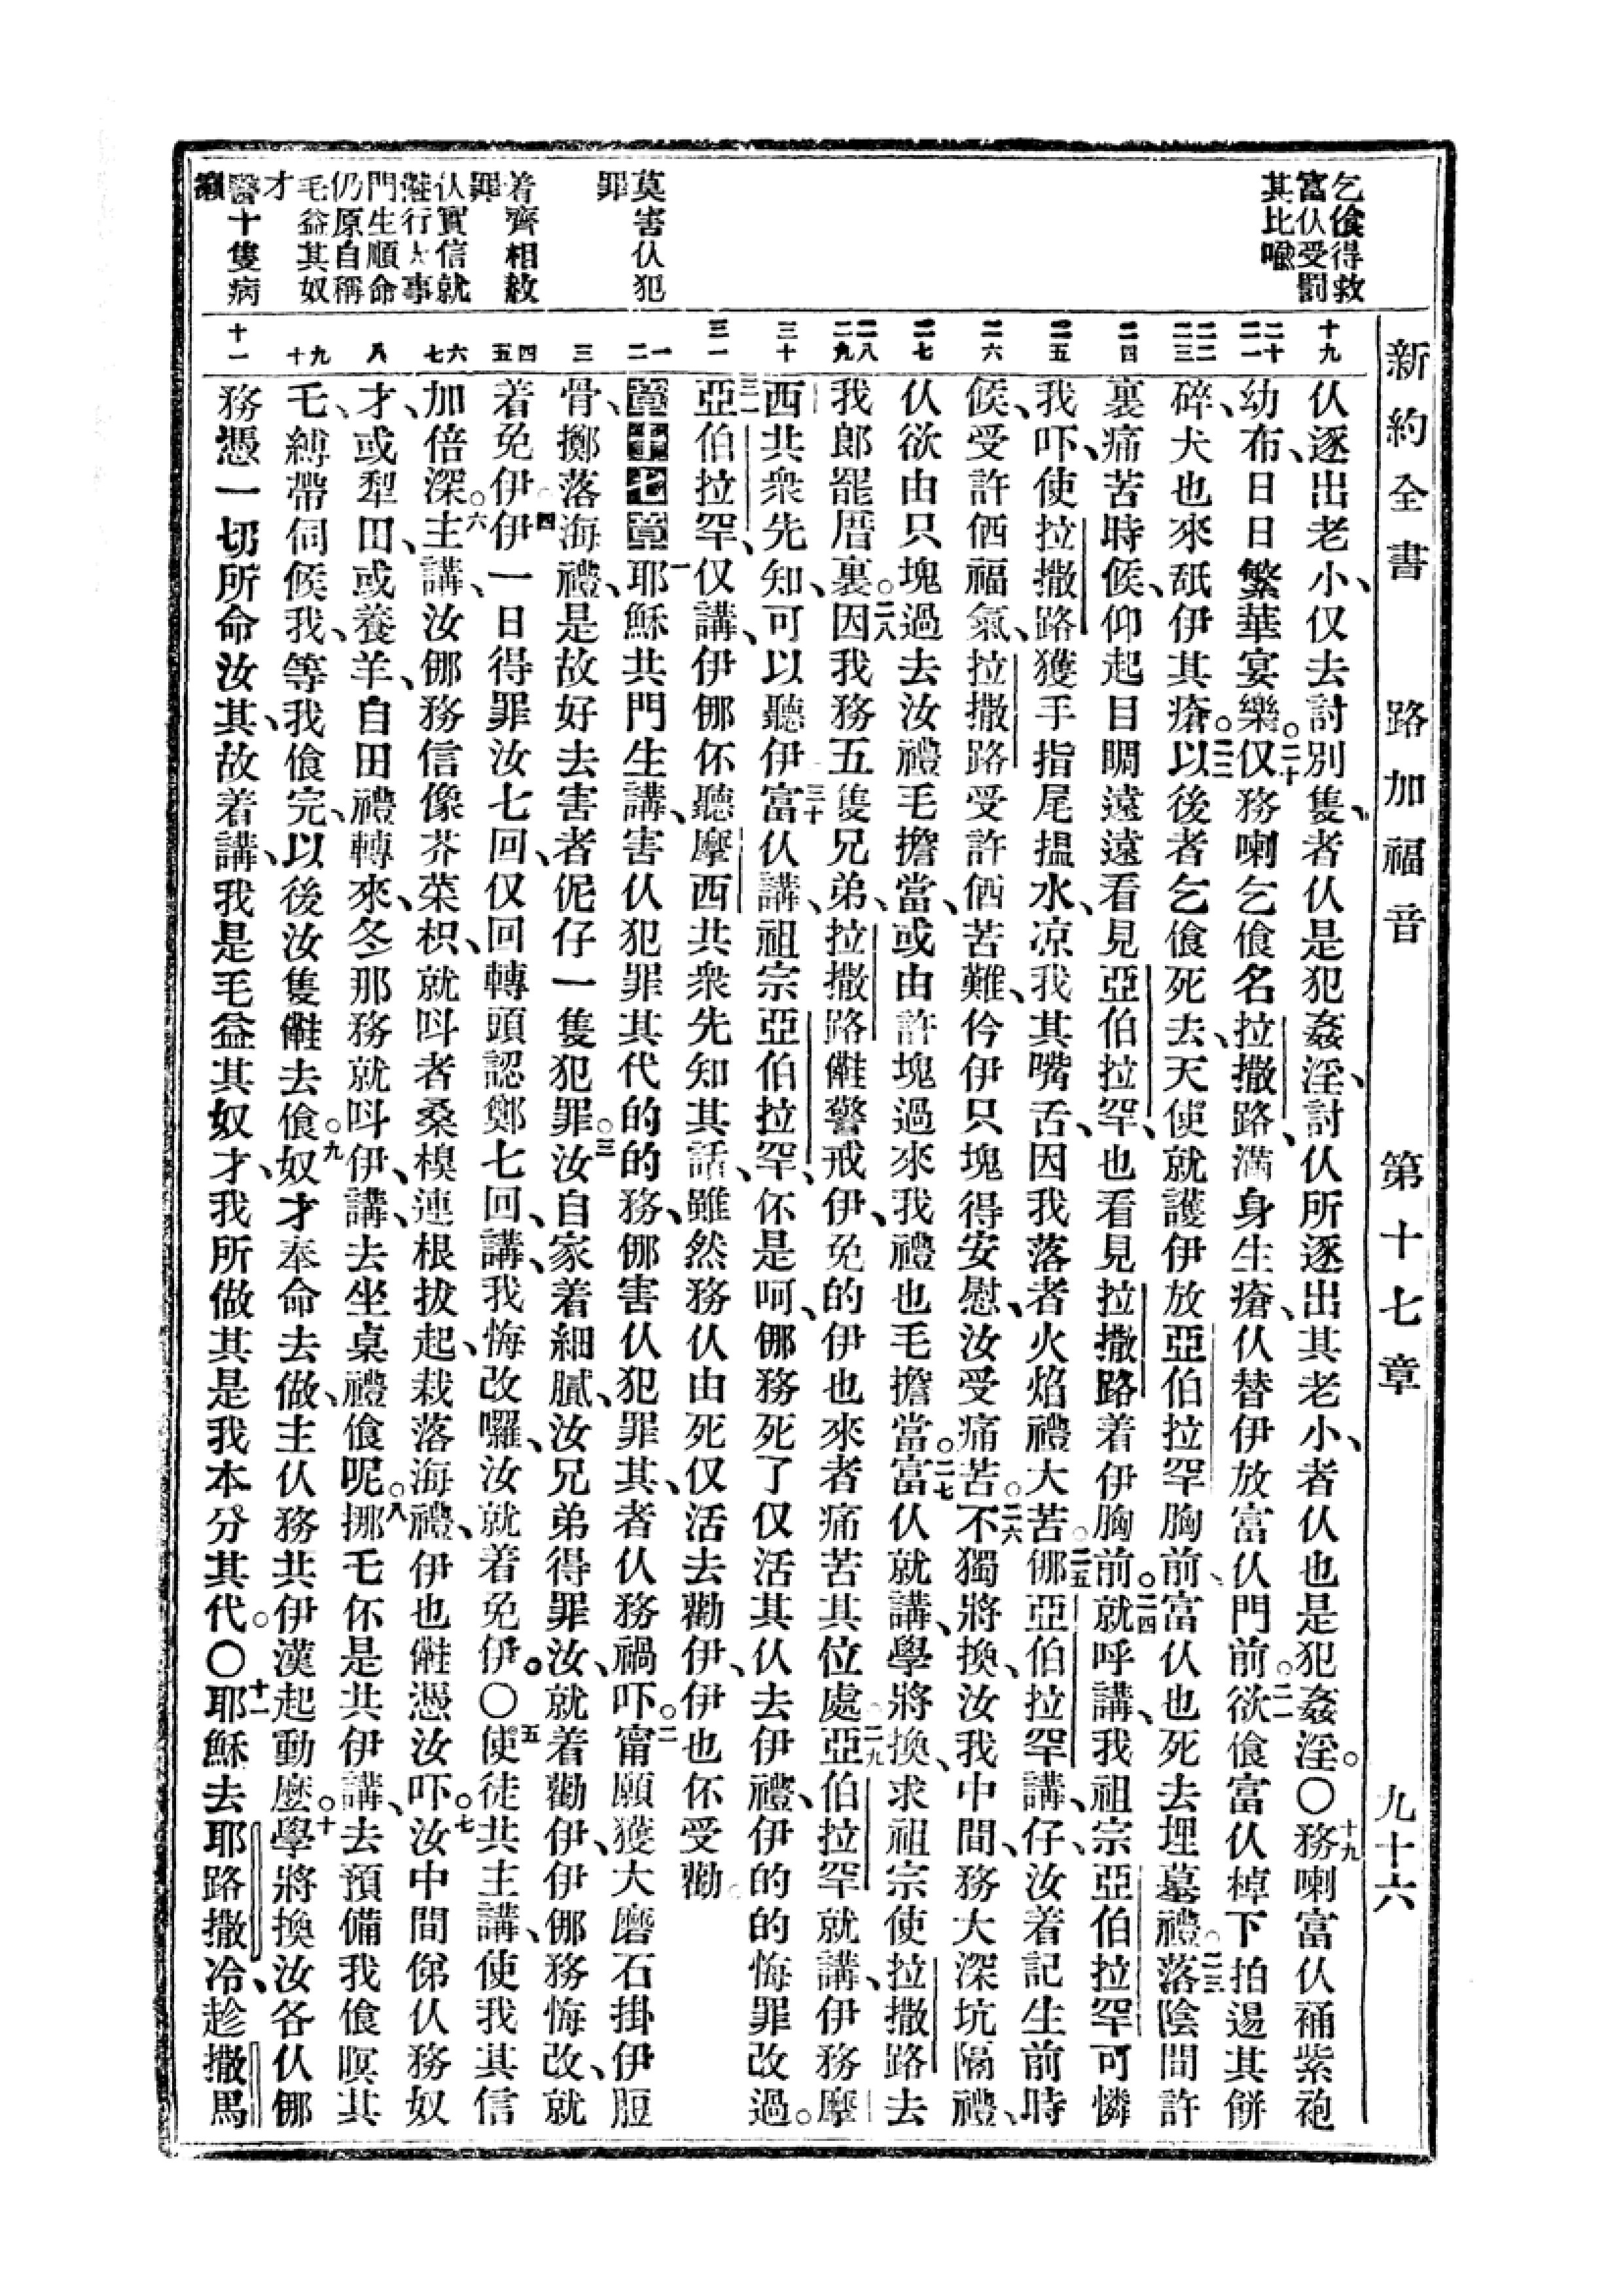 新約全書　路加福音　第十七章　九十六
乞飧得救
富仈受罰
其比喩
莫害仈犯
罪
着齊相赦
罪
仈實信就
行大事
門生順命
仍原自稱
毛益其奴
才
醫十隻病
十九
二十
二一
二二
二三
二四
二五
二六
二七
二八
二九
三十
三一
一
二
三
四
五
六
七
八
九
十
十一
仈逐出老小、仅去討別隻、者仈是犯姦淫、討仈所逐出其老小、者仈也是犯姦淫。〇十九務喇富仈䘄紫袍
幼布、日日繁華宴樂。二十仅務喇乞飧名拉撒路、滿身生瘡、仈替伊放富仈門前。二一欲飧富仈棹下拍逿其餅
碎、犬也來舐伊其瘡。二二以後者乞飧死去、天使就護伊放亞伯拉罕胸前、富仈也死去埋墓禮。二三落陰間許
裏痛苦時候、仰起目睭遠遠看見亞伯拉罕、也看見拉撒路着伊胸前。二四就呼講、我祖宗亞伯拉罕可憐
我吓、使拉撒路獲手指尾揾水、凉我其嘴舌、因我落者火焰禮大苦。二五㑚亞伯拉罕講、仔、汝着記生前時
候、受許㑄福氣、拉撒路受許㑄苦難、仱伊只塊得安慰、汝受痛苦。二六不獨將換、汝我中間、務大深坑隔禮、
仈欲由只塊過去汝禮毛擔當、或由許塊過來我禮也毛擔當。二七富仈就講、學將換、求祖宗使拉撒路去
我郎罷厝裏。二八因我務五隻兄弟、拉撒路警戒伊、免的伊也來者痛苦其位處。二九亞伯拉罕就講、伊務摩
西共衆先知、可以聽伊。三十富仈講、祖宗亞伯拉罕、伓是呵、㑚務死了仅活其仈去伊禮、伊的的悔罪改過。
三一亞伯拉罕、仅講、伊㑚伓聽摩西共衆先知其話、雖然務仈由死仅活去勸伊、伊也伓受勸。
第十七章一耶穌共門生講、害仈犯罪其代的的務、㑚害仈犯罪其、者仈務禍吓。二甯願獲大磨石掛伊脰
骨、擲落海禮、是故好去害者伲仔一隻犯罪。三汝自家着細膩、汝兄弟得罪汝、就着勸伊、伊㑚務悔改、就
着免伊。四伊一日得罪汝七回、仅回轉頭認鄭七回、講、我悔改囉、汝就着免伊。〇五使徒共主講、使我其信
加倍深。六主講、汝㑚務信像芥菜枳、就呌者桑模連根拔起、栽落海禮、伊也憑汝吓。七汝中間俤仈務奴
才、或犁田、或養羊、自田禮轉來、冬那務就呌伊、講、去坐桌禮飧呢。八挪毛伓是共伊講、去預備我飧暝其
毛、縛帶伺候我、等我飧完、以後汝隻去飧。九奴才奉命去做、主仈務共伊漢起動麽。十學將換汝各仈㑚
務憑一切所命汝其、故着講、我是毛益其奴才、我所做其是我本分其代。〇十一耶穌去耶路撒冷、趁撒馬